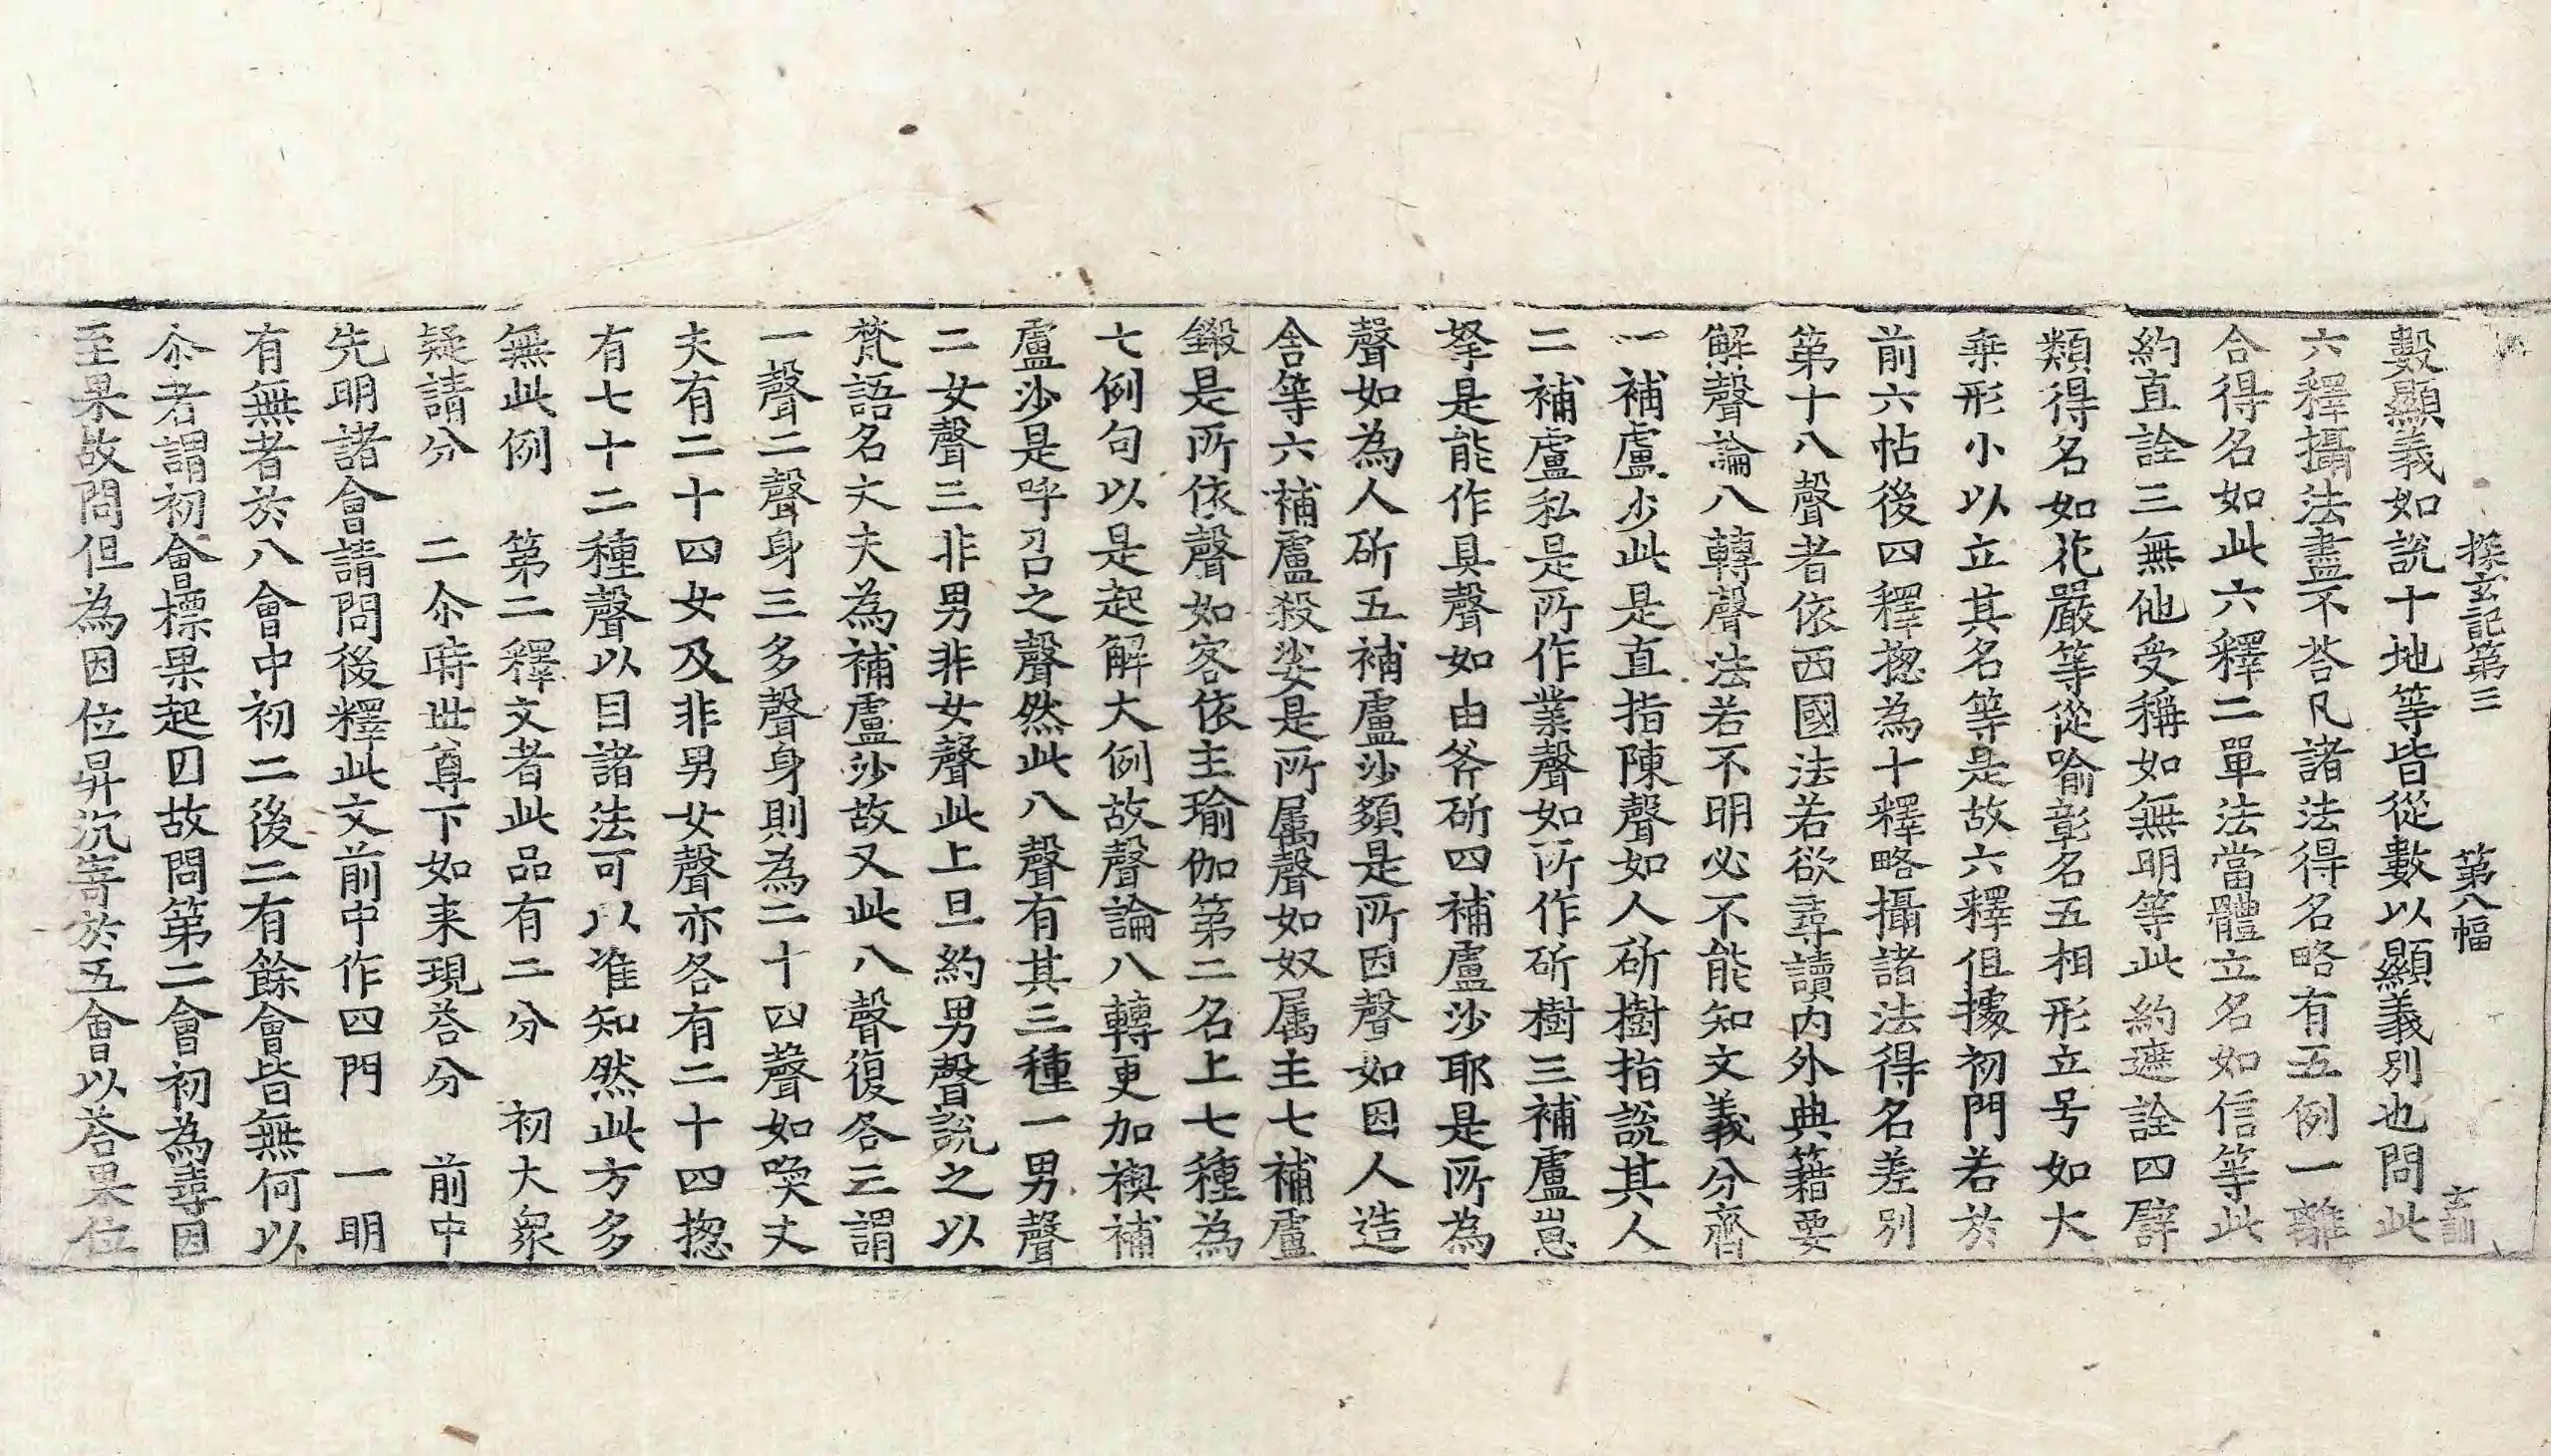 探玄記第三 第八幅 玄訓
數顯義如說十地等皆從數以顯義別也問此
六釋攝法盡不荅凡諸法得名略有五例一離
合得名如此六釋二單法當體立名如信等此
約直詮三無他受稱如無明等此約遮詮四譬
類得名如花嚴等從喻彰名五相形立号如大
乗形小以立其名等是故六釋但據初門若於
前六帖後四釋揔為十釋略攝諸法得名差別
第十八聲者依西國法若欲尋讀內外典籍要
解聲論八轉聲法若不明必不能知文義分齊
一補盧沙此是直指陳聲如人斫樹指說其人
二補盧私是所作業聲如所作斫樹三補盧崽
拏是能作具聲如由斧斫四補盧沙耶是所為
聲如為人斫五補盧沙𩒺是所因聲如因人造
舍等六補盧殺娑是所属聲如奴属主七補盧
鎩是所依聲如客依主瑜伽第二名上七種為
七例句以是起解大例故聲論八轉更加𥚥補
盧沙是呼召之聲然此八聲有其三種一男聲
二女聲三非男非女聲此上旦約男聲說之以
梵語名丈夫為補盧沙故又此八聲復各三謂
一聲二聲身三多聲身則為二十四聲如喚丈
夫有二十四女及非男女聲亦各有二十四揔
有七十二種聲以目諸法可以准知然此方多
無此例 第二釋文者此品有二分 初大衆
疑請分 二尒時世尊下如来現荅分 前中
先明諸會請問後釋此文前中作四門 一明
有無者於八會中初二後二有餘會皆無何以
尒者謂初會標果起因故問第二會初為尋因
至果故問但為因位昇沉寄於五會以荅果位